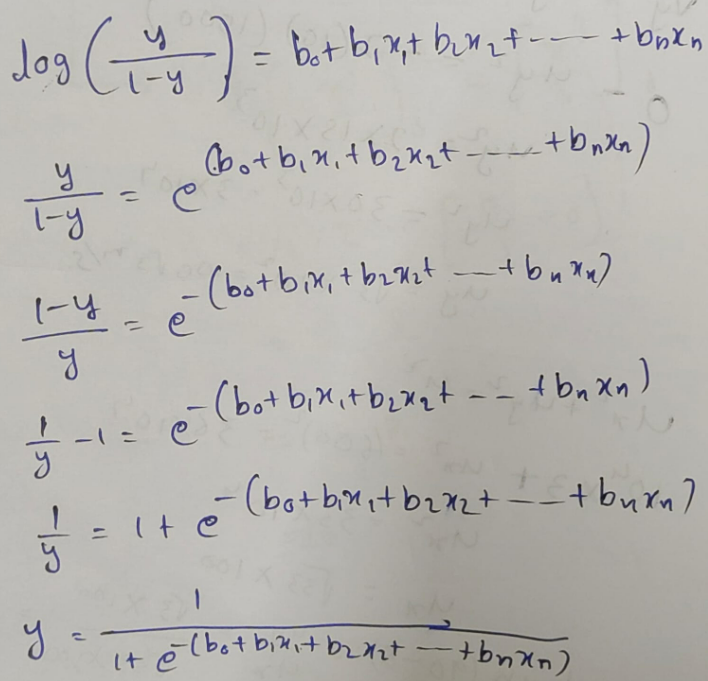 log(y/(1-y)) = b₀+b₁x₁+b₂x₂+-----+bₙxₙ
y/(1-y) = e^(b₀+b₁x₁+b₂x₂+----+bₙxₙ)
(1-y)/y = e^-(b₀+b₁x₁+b₂x₂+---+bₙxₙ)
1/y -1 = e^-(b₀+b₁x₁+b₂x₂+---+bₙxₙ)
1/y = 1+e^-(b₀+b₁x₁+b₂x₂+---+bₙxₙ)
y = 1/(1+e^-(b₀+b₁x₁+b₂x₂+---+bₙxₙ))